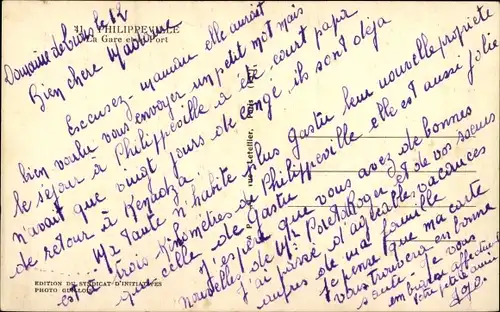 31. PHILIPPEVILLE
La Gare et le Port
Domaine de le 12
Bien chère Madame
Excusez maman elle aurait
bien voulu vous envoyer un petit mot mais
le séjour à Philippeville a été court papa
n'avait que vingt jours de congé, ils sont déja
de retour à Kenadza
Ma Tante n'habite plus Gastu leur nouvelle propriete
est à trois Kilomètres de Philippeville elle est aussi jolie
que celle de Gastu
J'espère que vous avez de bonnes
nouvelles de Mr Roger et de vos soeurs
J'ai passé d'agréables vacances
auprès de ma famille
Je pense que ma carte
vous trouvera en bonne
santé. Je vous
embrasse affectueusement
votre petite amie
rue Letellier, Paris
EDITION DU SYNDICAT D'INITIATIVES
PHOTO